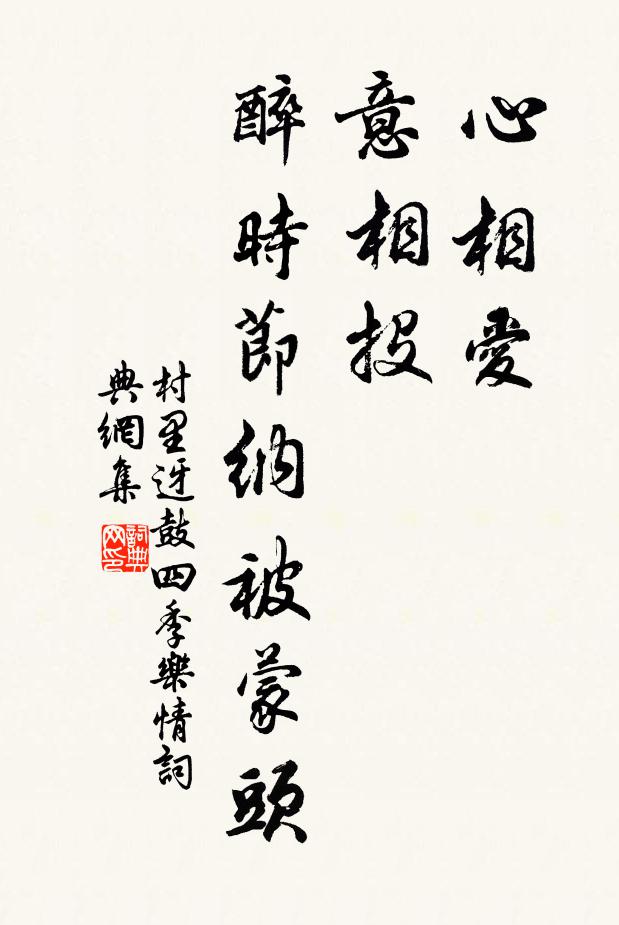 心相愛
意相投
醉時節納被蒙頭
村里迓鼓四季樂情詞
典網集
詞典网印